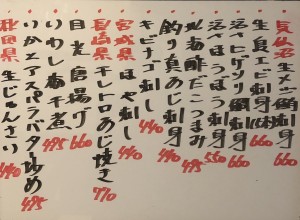 気仙沼 生メカ刺身 660
生鳥貝エビ刺身 660
活〆ヒゲソリ鯛刺身 660
活〆ほうぼう刺身 550
北海酢だこつまみ 495
釣り真あじ刺身 440
キビナゴ刺し 440
宮城県 ほや刺し 440
長崎県 干しトロあじ焼き 770
目光唐揚げ 660
いわし梅干煮 495
いかとアスパラバター炒め 495
秋田県 生じゅんさい 440